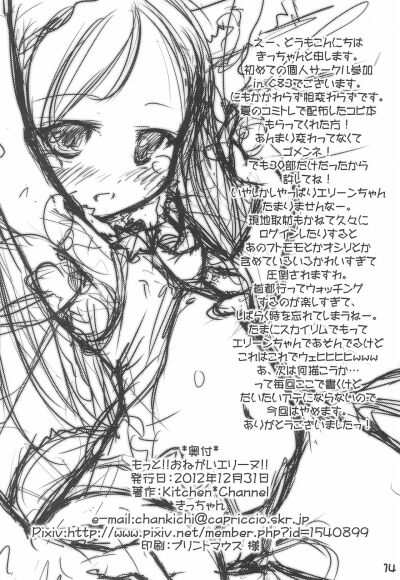 えー、どうもこんにちは
きっちゃんと申します。
初めての個人サークル参加
in C83でございます。
にもかかわらず相変わらずです。
夏のコミトレで配布したコピ本
もらってくれた方!
あんまり変わってなくて
ゴメンネ!
でも30部だけだったから
許してね!
いやしかしやっぱりエリーンちゃん
たまりませんなー。
現地取材もかねて久々に
ログインしたりすると
あのフトモモとかオシリとか
含めているいろかわいすぎて
圧倒されますね。
首都行ってウォッチング
するのが楽しすぎて、
しばらく時を忘れてしまうねー。
たまにスカイリムでもって
エリーンちゃんであそんでるけど
これはこれでウェヒヒヒヒwww
あ、次は何描こうか…
って毎回ここで書くけど
だいたいアテにならないので
今回はやめます。
ありがとうございましたっ!
*奥付*
もっと!!おねがいエリーヌ!!
発行日:2012年12月31日
著作:Kitchen*Channel
きっちゃん
e-mail:chankichi@capriccio.skr.jp
Pixiv:http://www.pixiv.net/member.php?id=1540899
印刷:プリントマウス 様
14